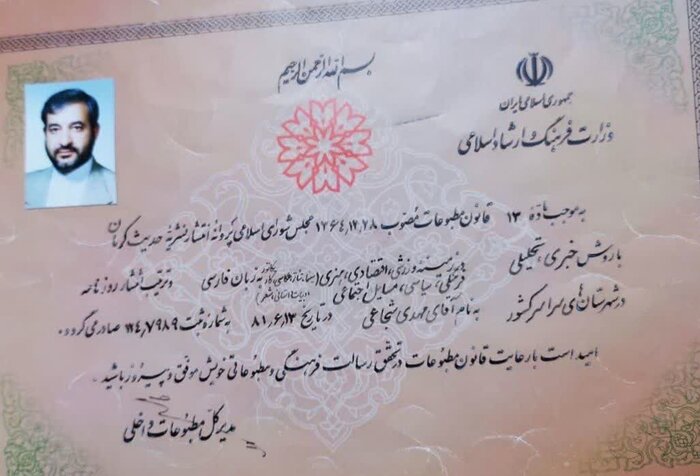 بسم الله الرحمن الرحیم
جمهوری اسلامی ایران
وزارت فرهنگ و ارشاد اسلامی
به موجب ماده ۱۳ قانون مطبوعات مصوب ۱۳۶۴٫۱۲٫۲۸ مجلس شورای اسلامی پروانه انتشار نشریه حدیث کرمان
با روش خبری، تحلیلی در زمینه ورزشی، اقتصادی، هنری
فرهنگی، سیاسی، مسایل اجتماعی به زبان فارسی و ترتیب انتشار روزنامه
در شهرستان های سراسر کشور به نام آقای مهدی شجاعی در تاریخ ۸۱٫۶٫۱۳ به شماره ثبت ۱۲۴٫۷۹۸۹ صادر می گردد.
امید است با رعایت قانون مطبوعات در تحقق رسالت فرهنگی و مطبوعاتی خویش موفق و پیروز باشید.
مدیر کل مطبوعات داخلی